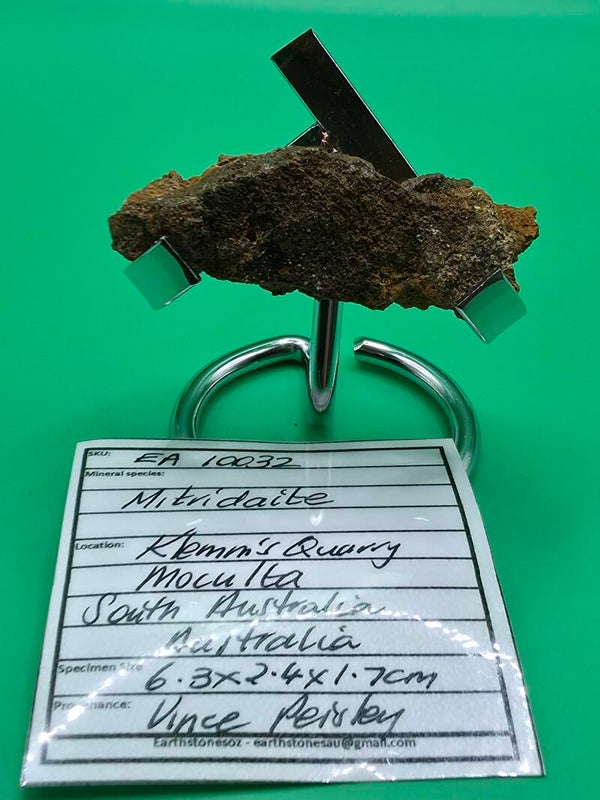 SKU: EA 10032
Mineral species:
Mitridaite
Location: Klemm's Quarry
Moculta
South Australia
Australia
Specimen Size 6.3x2.4x1.7cm
Provenance: Vince Peisley
Earthstonesoz - earthstonesau@gmail.com